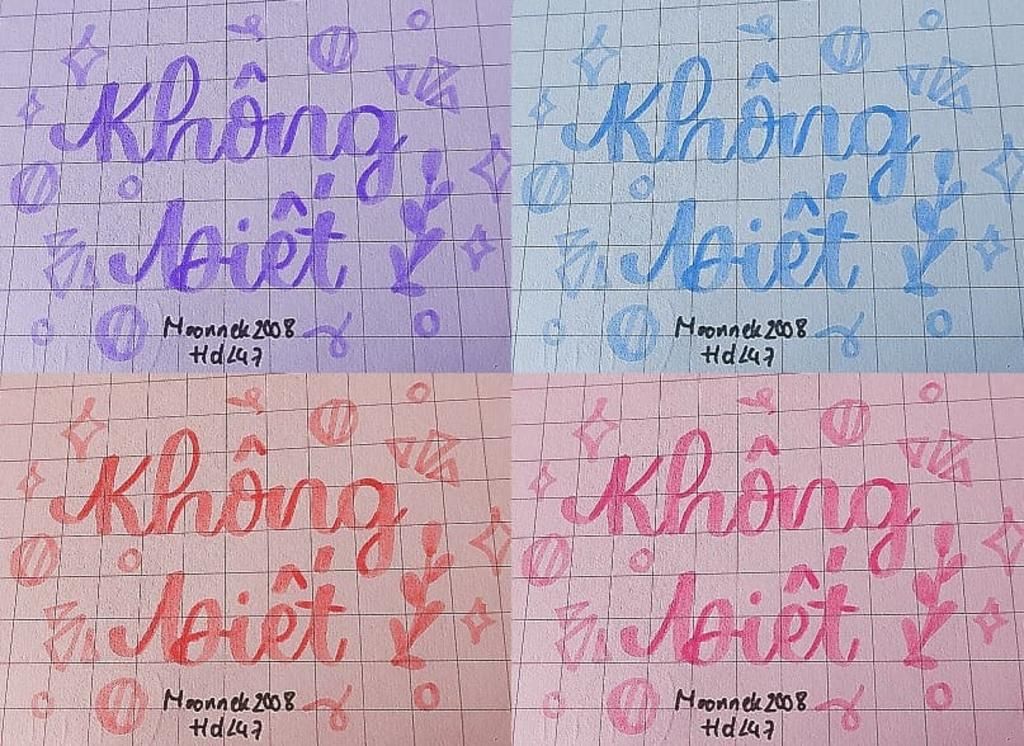 Không
biết
Moonnek2008
HdL47
Không
biết
Moonnek2008
HdL47
Không
biết
Moonnek2008
HdL47
Không
biết
Moonnek2008
HdL47